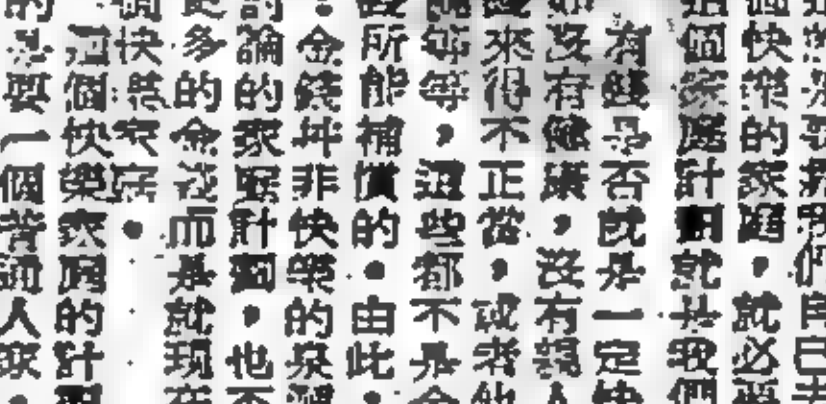 們自己
個快樂的家庭，就必要
個家庭計劃就是我們
有錢是否就是一定快
沒有健康，沒有親人
來得不正當，或者他
等等，這些都不是金
所能補償的。由此
金錢并非快樂的泉源
討論的家庭計劃，也不
更多的金錢而是就現在
快樂家庭。
這個快樂家庭的計劃
要一個普通人家